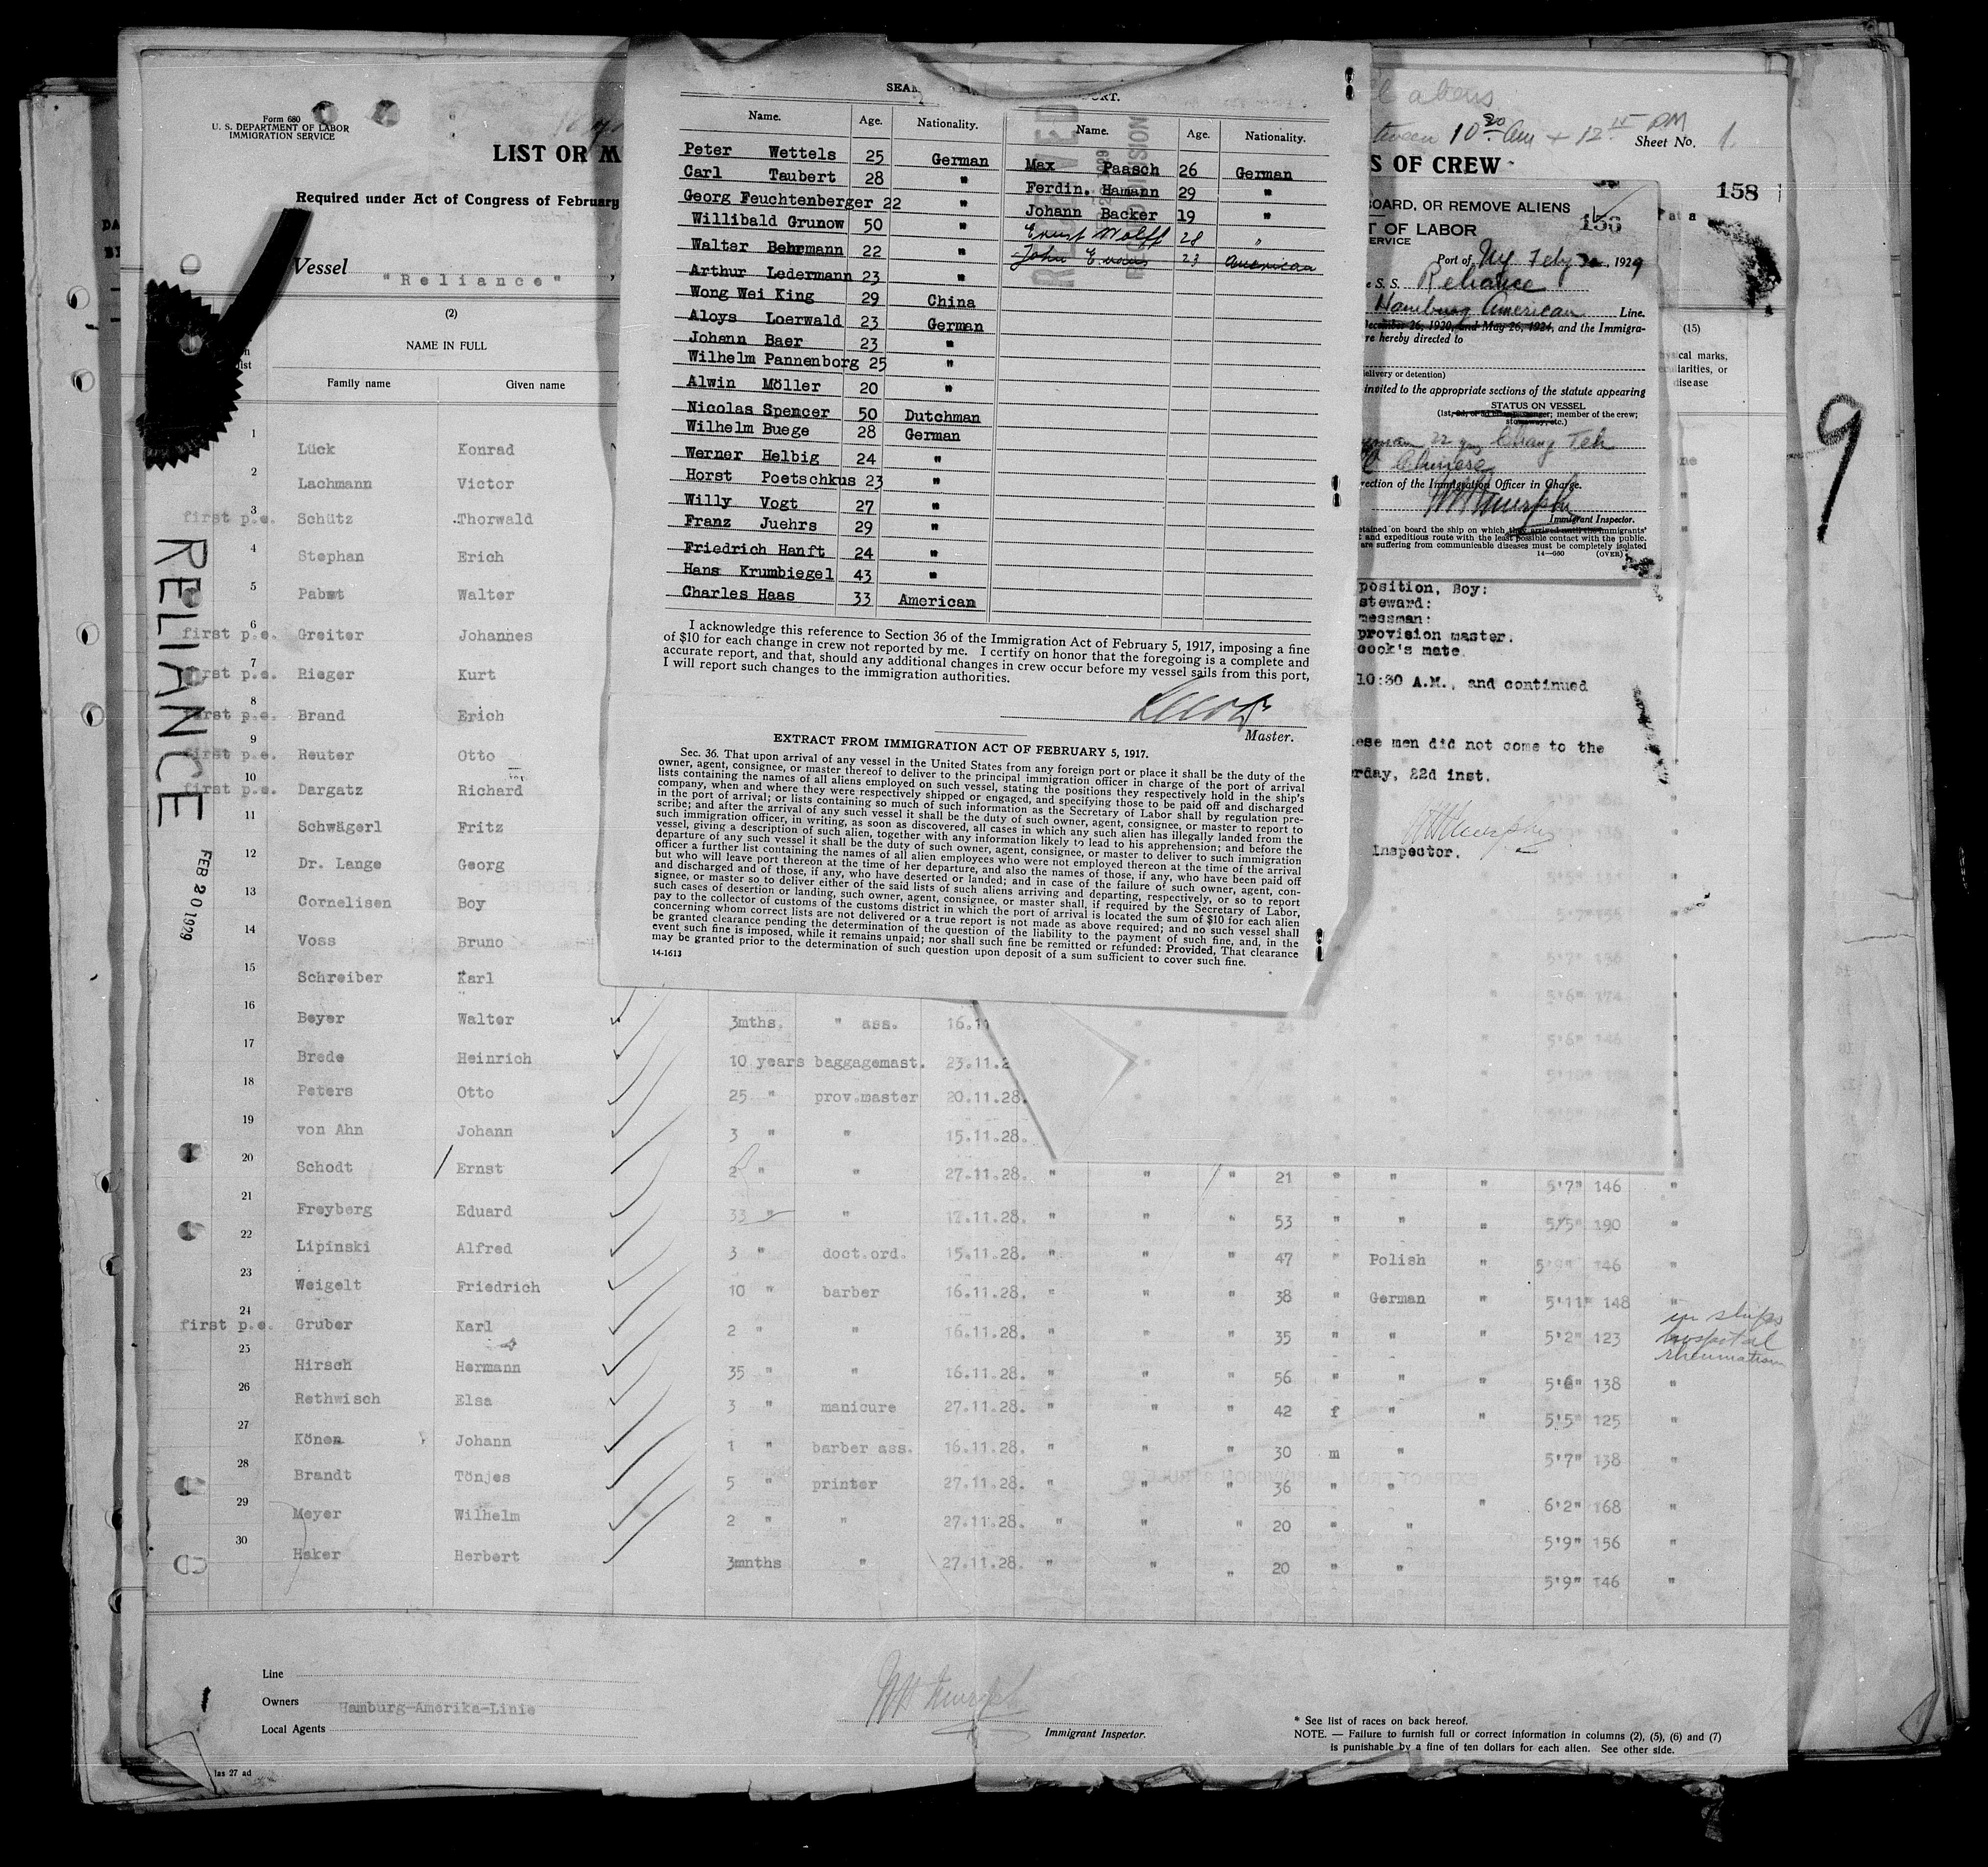 Form 680
U. S. DEPARTMENT OF LABOR
IMMIGRATION SERVICE
LIST OR M
Required under Act of Congress of February
Vessel "Reliance" ,
(2)
NAME IN FULL
Family name Given name
1 Lück Konrad
2 Lachmann Victor
3 first p.e. Schütz Thorwald
4 Stephan Erich
5 Pabst Walter
6 first p.e. Greiter Johannes
7 first p.e. Rieger Kurt
8 first p.e. Brand Erich
9 first p.e. Reuter Otto
10 first p.e. Dargatz Richard
11 Schwägerl Fritz
12 Dr. Lange Georg
13 Cornelisen Boy
14 Voss Bruno
15 Schreiber Karl
16 Beyer Walter 3mths. " ass. 16.11
17 Brede Heinrich 10 years baggagemast. 23.11.2
18 Peters Otto 25 " prov.master 20.11.28.
19 von Ahn Johann 3 " " 15.11.28.
20 Schodt Ernst 2 " " 27.11.28. " " " 21 " " " 5'7" 146 "
21 Freyberg Eduard 33 " " 17.11.28. " " " 53 " " " 5'5" 190 "
22 Lipinski Alfred 3 " doct.ord. 15.11.28. " " " 47 " Polish " 146 "
23 Weigelt Friedrich 10 " barber 16.11.28. " " " 38 " German " 5'11" 148 "
24 first p.e. Gruber Karl 2 " " 16.11.28. " " " 35 " " " 5'2" 123 in ships hospital rheumatism
25 Hirsch Hermann 35 " " 16.11.28. " " " 56 " " " 5'6" 138 "
26 Rethwisch Elsa 3 " manicure 27.11.28. " " " 42 f " " 5'5" 125 "
27 Könen Johann 1 " barber ass. 16.11.28. " " " 30 m " 5'7" 138 "
28 Brandt Tönjes 5 " printer 27.11.28. " " " 36 " " " 6'2" 168 "
29 Meyer Wilhelm 2 " " 27.11.28. " " " 20 " " 5'9" 156 "
30 Haker Herbert 3mnths " 27.11.28. " " " 20 " " 5'9" 146 "
Line
Owners Hamburg-Amerika-Linie
Local Agents
Immigrant Inspector.
* See list of races on back hereof.
NOTE. — Failure to furnish full or correct information in columns (2), (5), (6) and (7)
is punishable by a fine of ten dollars for each alien. See other side.
RELIANCE
FEB 20 1929
Name. Age. Nationality. Name. Age. Nationality.
Peter Wettels 25 German Max Paasch 26 German
Carl Taubert 28 " Ferdin. Hamann 29 "
Georg Feuchtenberger 22 " Johann Backer 19 "
Willibald Grunow 50 " Ernst Wolff 28 "
Walter Behrmann 22 " John Evans 23 American
Arthur Ledermann 23 "
Wong Wei King 29 China
Aloys Loerwald 23 German
Johann Baer 23 "
Wilhelm Pannenborg 25 "
Alwin Möller 20 "
Nicolas Spencer 50 Dutchman
Wilhelm Buege 28 German
Werner Helbig 24 "
Horst Poetschkus 23 "
Willy Vogt 27 "
Franz Juehrs 29 "
Friedrich Hanft 24 "
Hans Krumbiegel 43 "
Charles Haas 33 American
RECEIVED
I acknowledge this reference to Section 36 of the Immigration Act of February 5, 1917, imposing a fine
of $10 for each change in crew not reported by me. I certify on honor that the foregoing is a complete and
accurate report, and that, should any additional changes in crew occur before my vessel sails from this port,
I will report such changes to the immigration authorities.
Master.
EXTRACT FROM IMMIGRATION ACT OF FEBRUARY 5, 1917.
Sec. 36. That upon arrival of any vessel in the United States from any foreign port or place it shall be the duty of the
owner, agent, consignee, or master thereof to deliver to the principal immigration officer in charge of the port of arrival
lists containing the names of all aliens employed on such vessel, stating the positions they respectively hold in the ship's
company, when and where they were respectively shipped or engaged, and specifying those to be paid off and discharged
in the port of arrival; or lists containing so much of such information as the Secretary of Labor shall by regulation pre-
scribe; and after the arrival of any such vessel it shall be the duty of such owner, agent, consignee, or master to report to
such immigration officer, in writing, as soon as discovered, all cases in which any such alien has illegally landed from the
vessel, giving a description of such alien, together with any information likely to lead to his apprehension; and before the
departure of any such vessel it shall be the duty of such owner, agent, consignee, or master to deliver to such immigration
officer a further list containing the names of all alien employees who were not employed thereon at the time of the arrival
but who will leave port thereon at the time of her departure, and also the names of those, if any, who have been paid off
and discharged and of those, if any, who have deserted or landed; and in case of the failure of such owner, agent, con-
signee, or master so to deliver either of the said lists of such aliens arriving and departing, respectively, or so to report
such cases of desertion or landing, such owner, agent, consignee, or master shall, if required by the Secretary of Labor,
pay to the collector of customs of the customs district in which the port of arrival is located the sum of $10 for each alien
concerning whom correct lists are not delivered or a true report is not made as above required; and no such vessel shall
be granted clearance pending the determination of the question of the liability to the payment of such fine, and, in the
event such fine is imposed, while it remains unpaid; nor shall such fine be remitted or refunded: Provided, That clearance
may be granted prior to the determination of such question upon deposit of a sum sufficient to cover such fine.
14-1613
aliens
10 30 am + 12 15 PM
Sheet No. 1.
S OF CREW
158
OARD, OR REMOVE ALIENS
T OF LABOR
ERVICE
156
Port of NY Feby 20, 1929
S. S. Reliance
Hamburg American Line.
December 26, 1920, and May 26, 1924, and the Immigra-
re hereby directed to
delivery or detention)
invited to the appropriate sections of the statute appearing
STATUS ON VESSEL
member of the crew;
stowaway, etc.)
22 Chang Teh
Chinese
rection of the Immigration Officer in Charge.
Immigrant Inspector.
etained on board the ship on which they arrived until the immigrants'
and expeditious route with the least possible contact with the public.
are suffering from communicable diseases must be completely isolated
14—660 (OVER)
position, Boy:
steward:
messman:
provision master.
cook's mate.
10:30 A.M., and continued
ese men did not come to the
rday, 22d inst.
Inspector.
(15)
ysical marks,
culiarities, or
disease
9